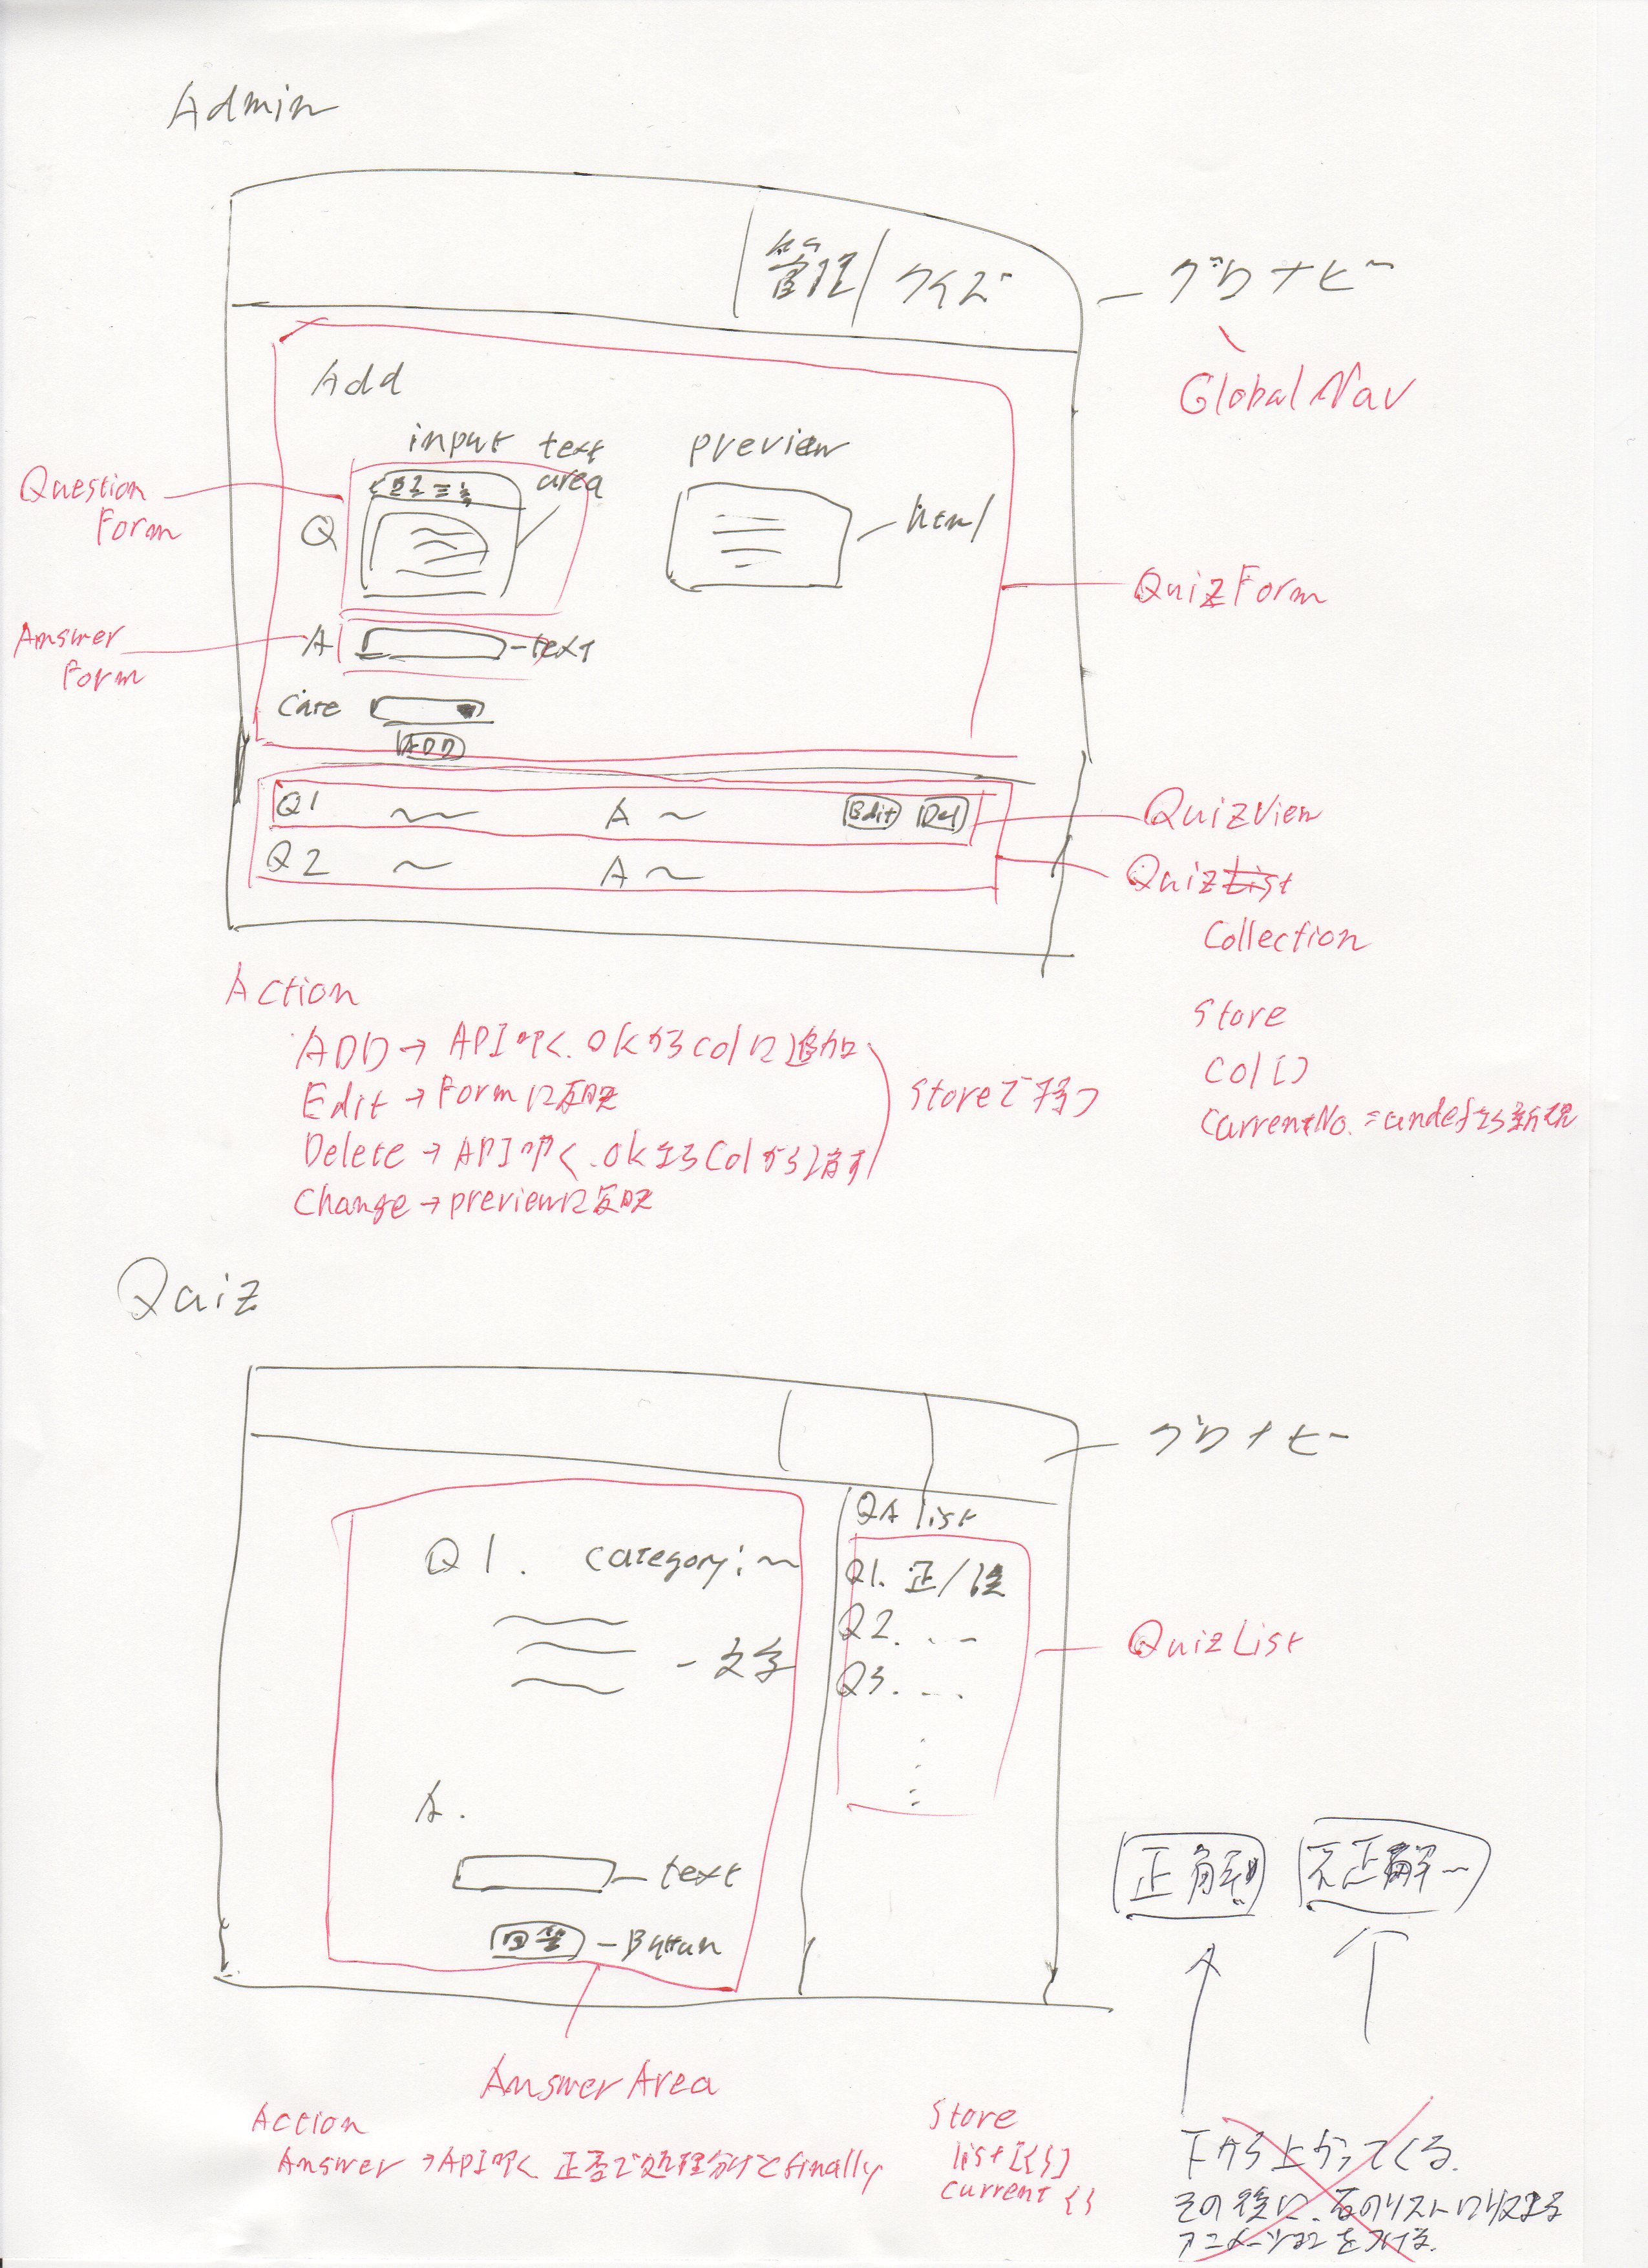 Admin
管理 クイズ
グロナビー
GlobalNav
Add
input text area
preview
Question Form
Q
html
QuizForm
Answer Form
A
text
Cate
ADD
Q1 A Edit Del
QuizView
Q2 A
QuizList
Collection
Action
ADD → API叩く.OKならcolに追加
Edit → Formに反映
Delete → API叩く.OKならColから消す
Change → previewに反映
Storeで持つ
Store
Col[]
CurrentNo. = undefなら新規
Quiz
グロナビー
QA list
Q1. category:
Q1. 正/誤
Q2.
Q3.
文字
QuizList
A.
text
回答
Button
正解!!
不正解～
AnswerArea
Action
Answer → API叩く 正否で処理分けてfinally
Store
list[{}]
current {}
下から上がってくる.
その後に、右のリストに収まる
アニメーションをつける.